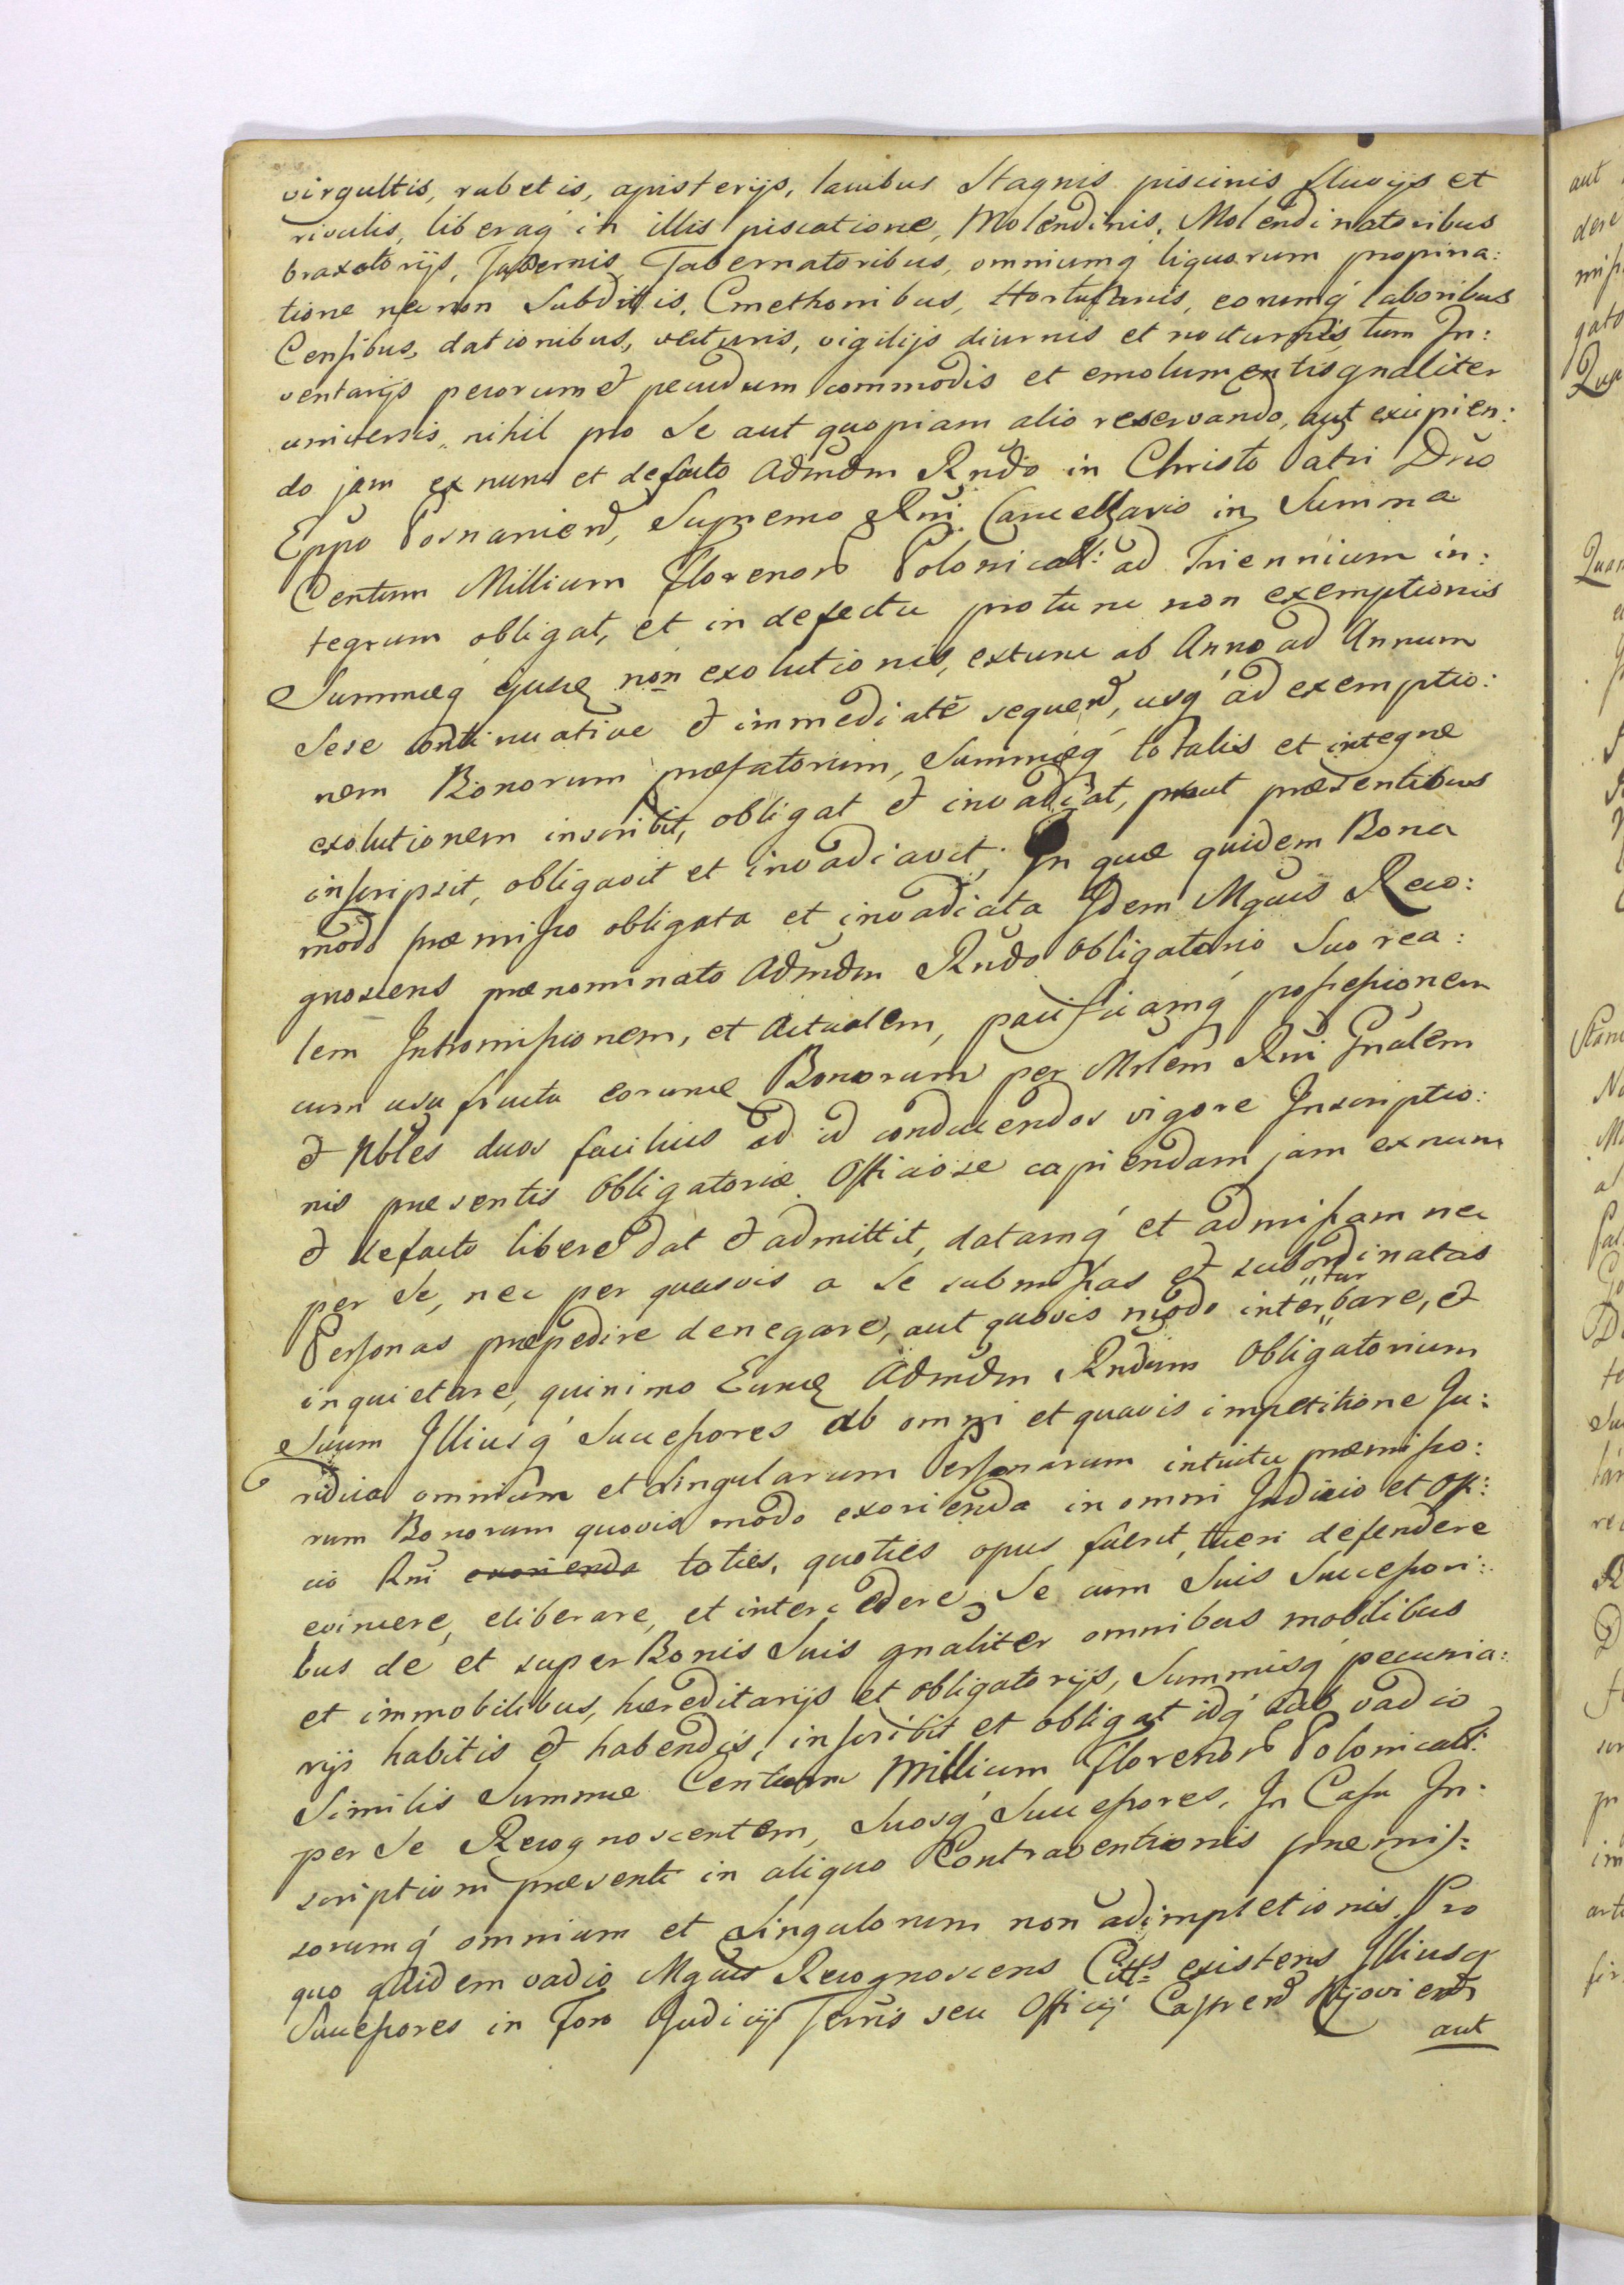 virgultis, rubetis, apisterijs, lacubus Stagnis piscinis fluvijs et
rivulis, liberaq́ in illis piscatione, Molendinis, Molendinatoribus
braxatorijs, Tabernis, Tabernatoribus, omniumq́ liquorum propina:
tione necnon Subditis, Cmethonibus, Hortulanis, eorumq́ laboribus
Censibus, dationibus, vecturis, vigilijs diurnis et nocturnis, tum In:
ventarijs pecorum & pecudum commodis et emolumentis gnaliter
universis, nihil pro Se aut quopiam alio reservando, aut excipien:
do jam ex nunc et defacto Admdm Rndo in Christo Patri Dno
Eppo Posnaniend, Supremo Rni Cancellario in Summa
Centum Millium florenor Polonicall: ad Triennium in:
tegrum obligat, et in defectu protunc non exemptionis
Summæq́ ejusq non exolutionis, extunc ab Anno ad Annum
Sese continuative & immediatè sequend, usq́ ad exemptio:
nem Bonorum præfatorum, Summæq́ totalis et integræ
exolutionem inscribit, obligat & invadiat, prout præsentibus
inscripsit, obligavit et invadiavit; In quæ quidem Bona
modo præmisso obligata et invadiata Idem Mgcus Reco:
gnoscens prænominato Admdm Rndo Obligatorio Suo rea:
lem Intromissionem, et Actualem, pacificamq́ possessionem
cum usufructu eorumq Bonorum per Mrlem Rni Gnalem
& Nbles duos facilius ad id conducendos vigore Inscriptio:
nis præsentis Obligatoriæ Officiose capiendam jam exnunc
& defacto libere dat & admittit, datamq́ et admissam nec
per Se, nec per quasvis a Se submissas & subordinatas
Personas præpedire denegare, aut quovis modo inter"tur"bare, &
inquietare, quinimo Eumq Admdm Rndum Obligatorium
Suum Illiusq́ Successores ab omni et quavis impetitione Ju:
ridica omnium et Singularum Personarum intuitu præmisso:
rum Bonorum quovis modo exorienda in omni Judicio et Off:
cio Rni exorienda toties, quoties opus fuerit, tueri defendere
evincere, eliberare, et intercedere, Se cum Suis Successori:
bus de et super Bonis Suis gnaliter omnibus mobilibus
et immobilibus, hæreditarijs et obligatorijs, Summisq́ pecunia:
rijs habitis & habendis, inscribit et obligat idq́ sub vadio
Similis Summæ Centum Millium florenor Polonicall:
per Se Recognoscentem, Suosq́ Successores, In Casu In:
scriptioni præsenti in aliquo Contraventionis præmis:
sorumq́ omnium et Singulorum non adimpletionis. Pro
quo quidem vadio Mgcus Recognoscens Citts existens Illiusq
Successores in Foro Judicij Terris seu Officij Castrend Kijoviend
aut